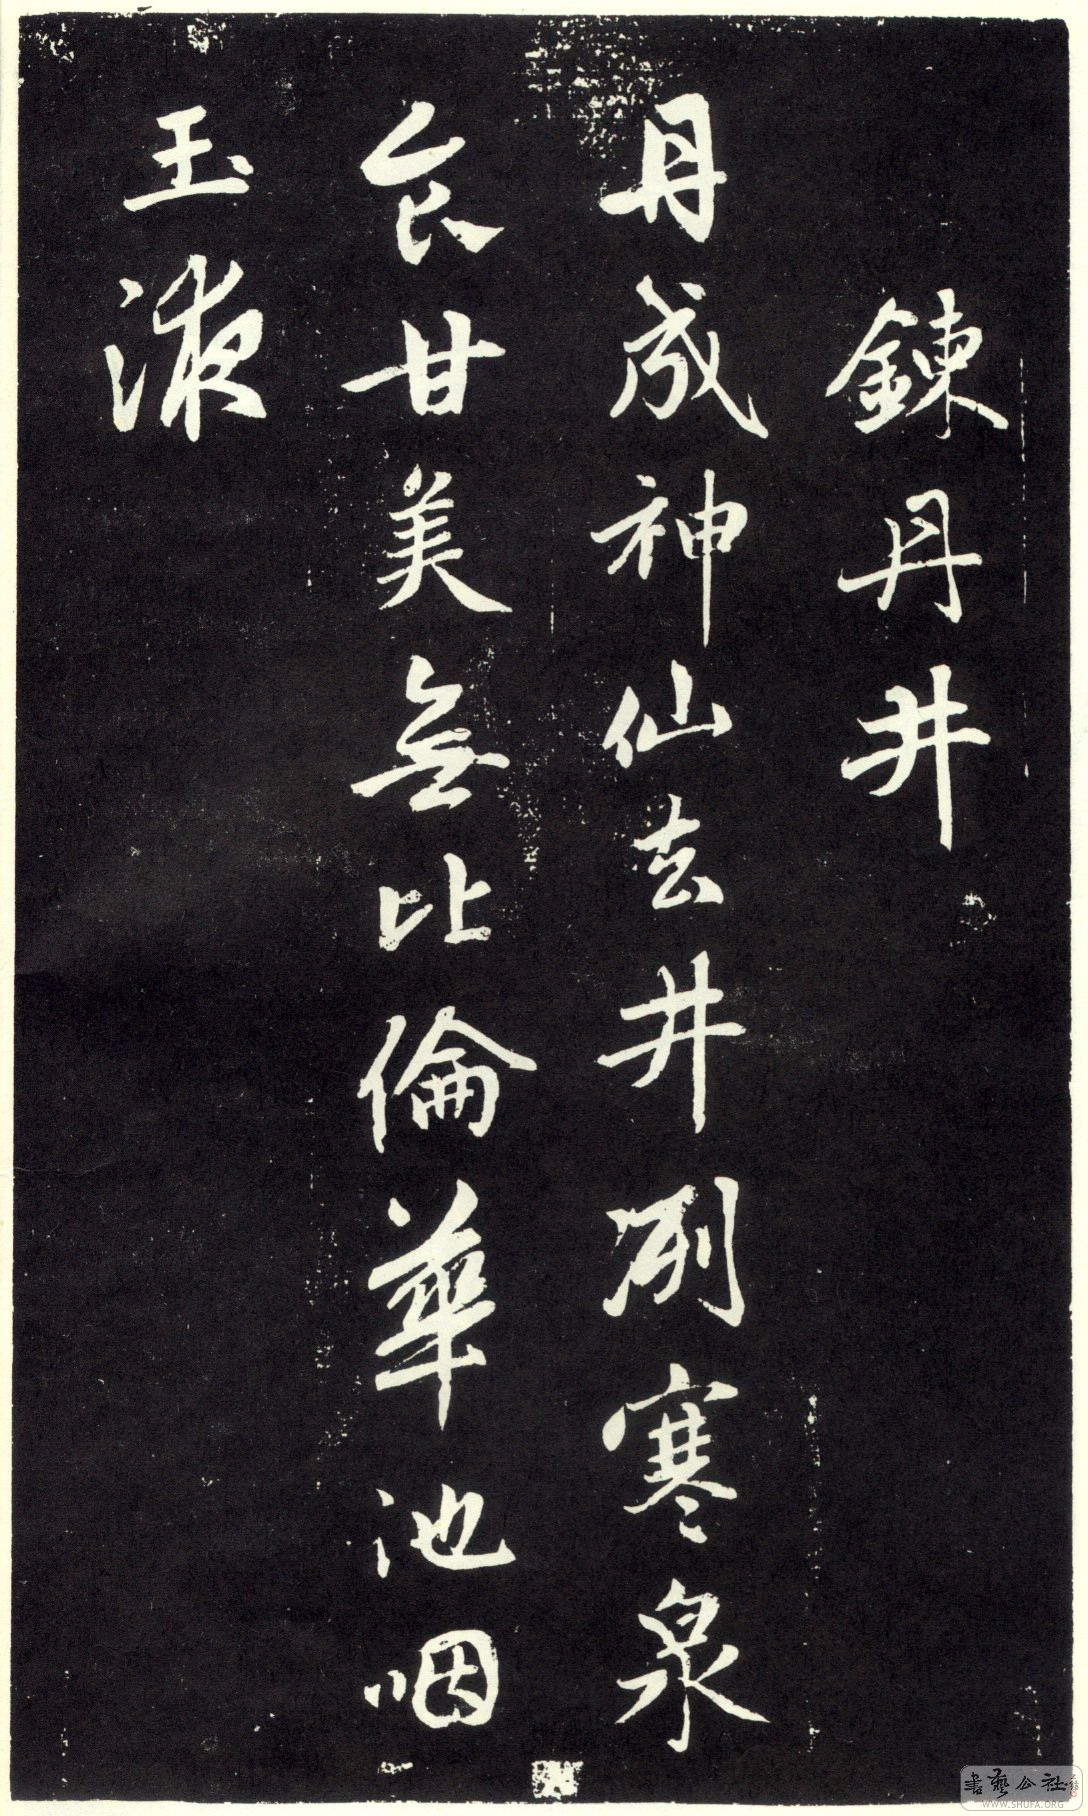 鍊丹井
丹成神仙去井冽寒泉
食甘美無比倫華池咽
玉液
書藝公社
WWW.SHUFA.ORG